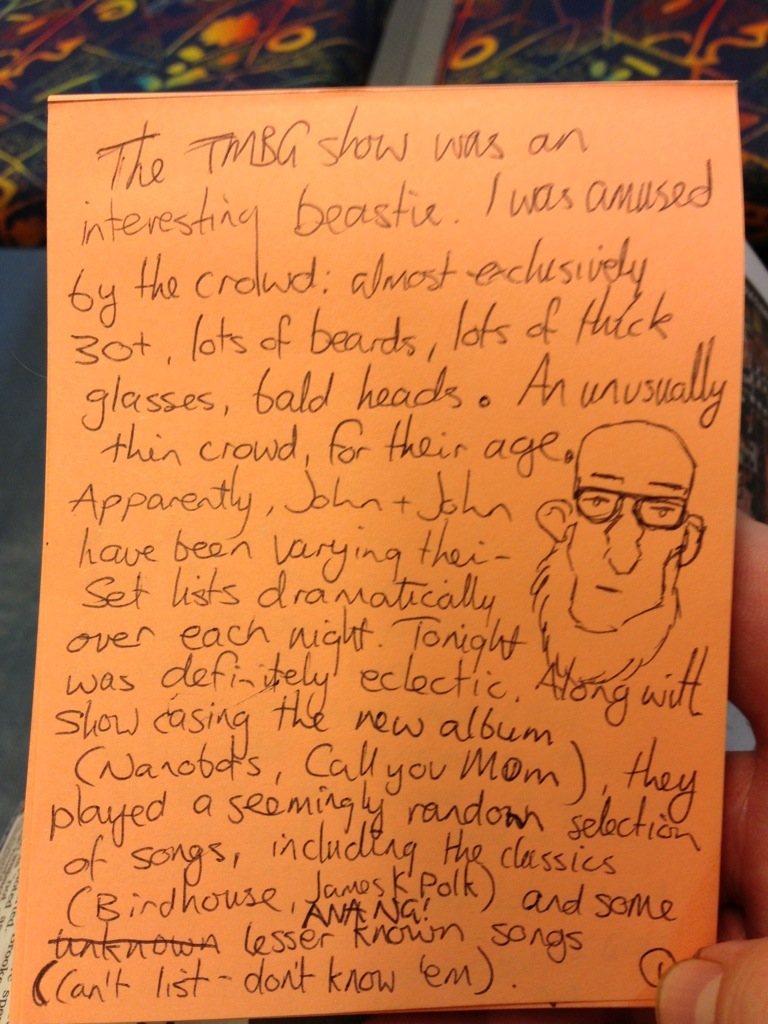 The TMBG show was an
interesting beastie. I was amused
by the crowd: almost exclusively
30+, lots of beards, lots of thick
glasses, bald heads. An unusually
thin crowd, for their age.
Apparently, John + John
have been varying their
set lists dramatically
over each night. Tonight
was definitely eclectic. Along with
showcasing the new album
(Nanobots, Call you Mom), they
played a seemingly random selection
of songs, including the classics
(Birdhouse, James K Polk) and some
ANA NG!
unknown lesser known songs
(can't list - don't know 'em).
1